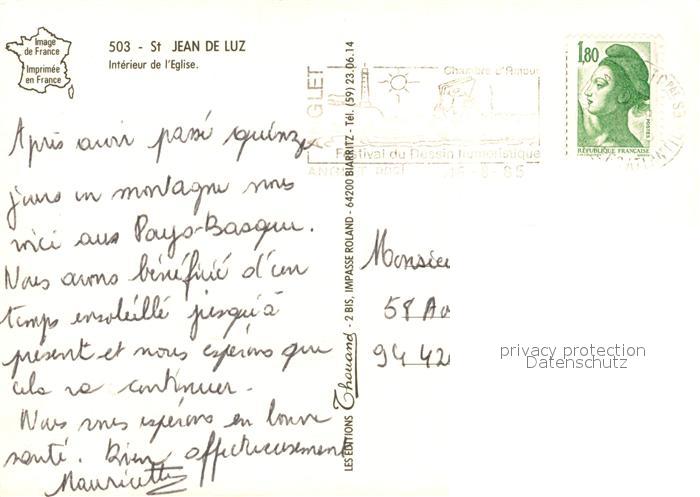 Image
de France
Imprimée
en France
503 - St JEAN DE LUZ
Intérieur de l'Eglise.
Après avoir passé quinze
jours en montagne nous
voici aux Pays-Basque.
Nous avons bénéficié d'un
temps ensoleillé jusqu'à
présent et nous espérons que
cela va continuer.
Nous vous espérons en bonne
santé. Bien affectueusement
Mauricette
LES EDITIONS Thouand - 2 BIS, IMPASSE ROLAND - 64200 BIARRITZ - Tél. (59) 23.06.14
GLET
Chambre d'Amour
Festival du Dessin humoristique
1,80
POSTES
RÉPUBLIQUE FRANÇAISE
Monsieu
58 Av
94 42
privacy protection
Datenschutz